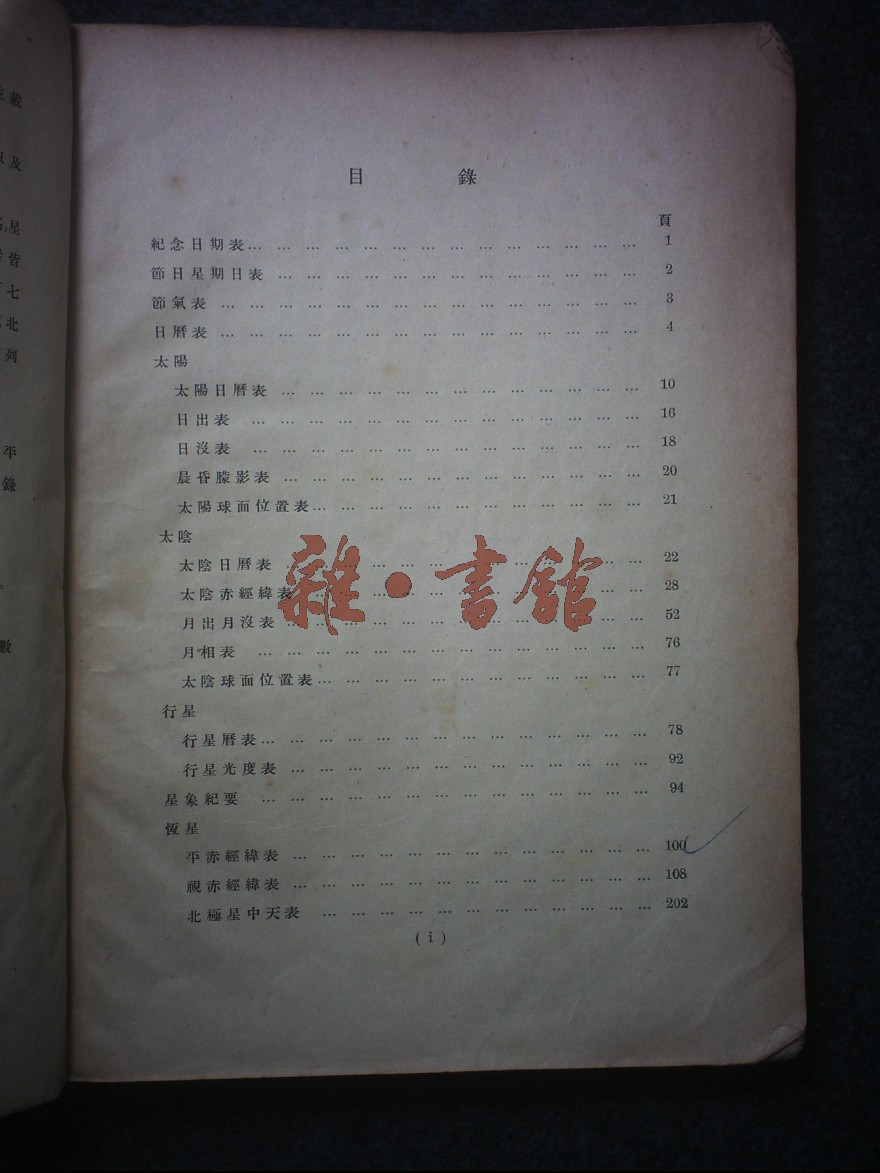 目錄
頁
紀念日期表… … … … … … … … … … … … … … 1
節日星期日表 … … … … … … … … … … … … … 2
節氣表 … … … … … … … … … … … … … … … 3
日曆表 … … … … … … … … … … … … … … … 4
太陽
太陽日曆表 … … … … … … … … … … … … … 10
日出表 … … … … … … … … … … … … … … 16
日沒表 … … … … … … … … … … … … … … 18
晨昏朦影表 … … … … … … … … … … … … … 20
太陽球面位置表… … … … … … … … … … … … 21
太陰
太陰日曆表 … … … … … … … … … … … … … 22
太陰赤經緯表… … … … … … … … … … … … 28
月出月沒表 … … … … … … … … … … … … … 52
月相表 … … … … … … … … … … … … … … 76
太陰球面位置表… … … … … … … … … … … … 77
行星
行星曆表… … … … … … … … … … … … … … 78
行星光度表 … … … … … … … … … … … … … 92
星象紀要 … … … … … … … … … … … … … … 94
恆星
平赤經緯表 … … … … … … … … … … … … … 100
視赤經緯表 … … … … … … … … … … … … … 108
北極星中天表 … … … … … … … … … … … … 202
(i)
雜·書館
載
及
星
皆
七
北
列
平
錄
數